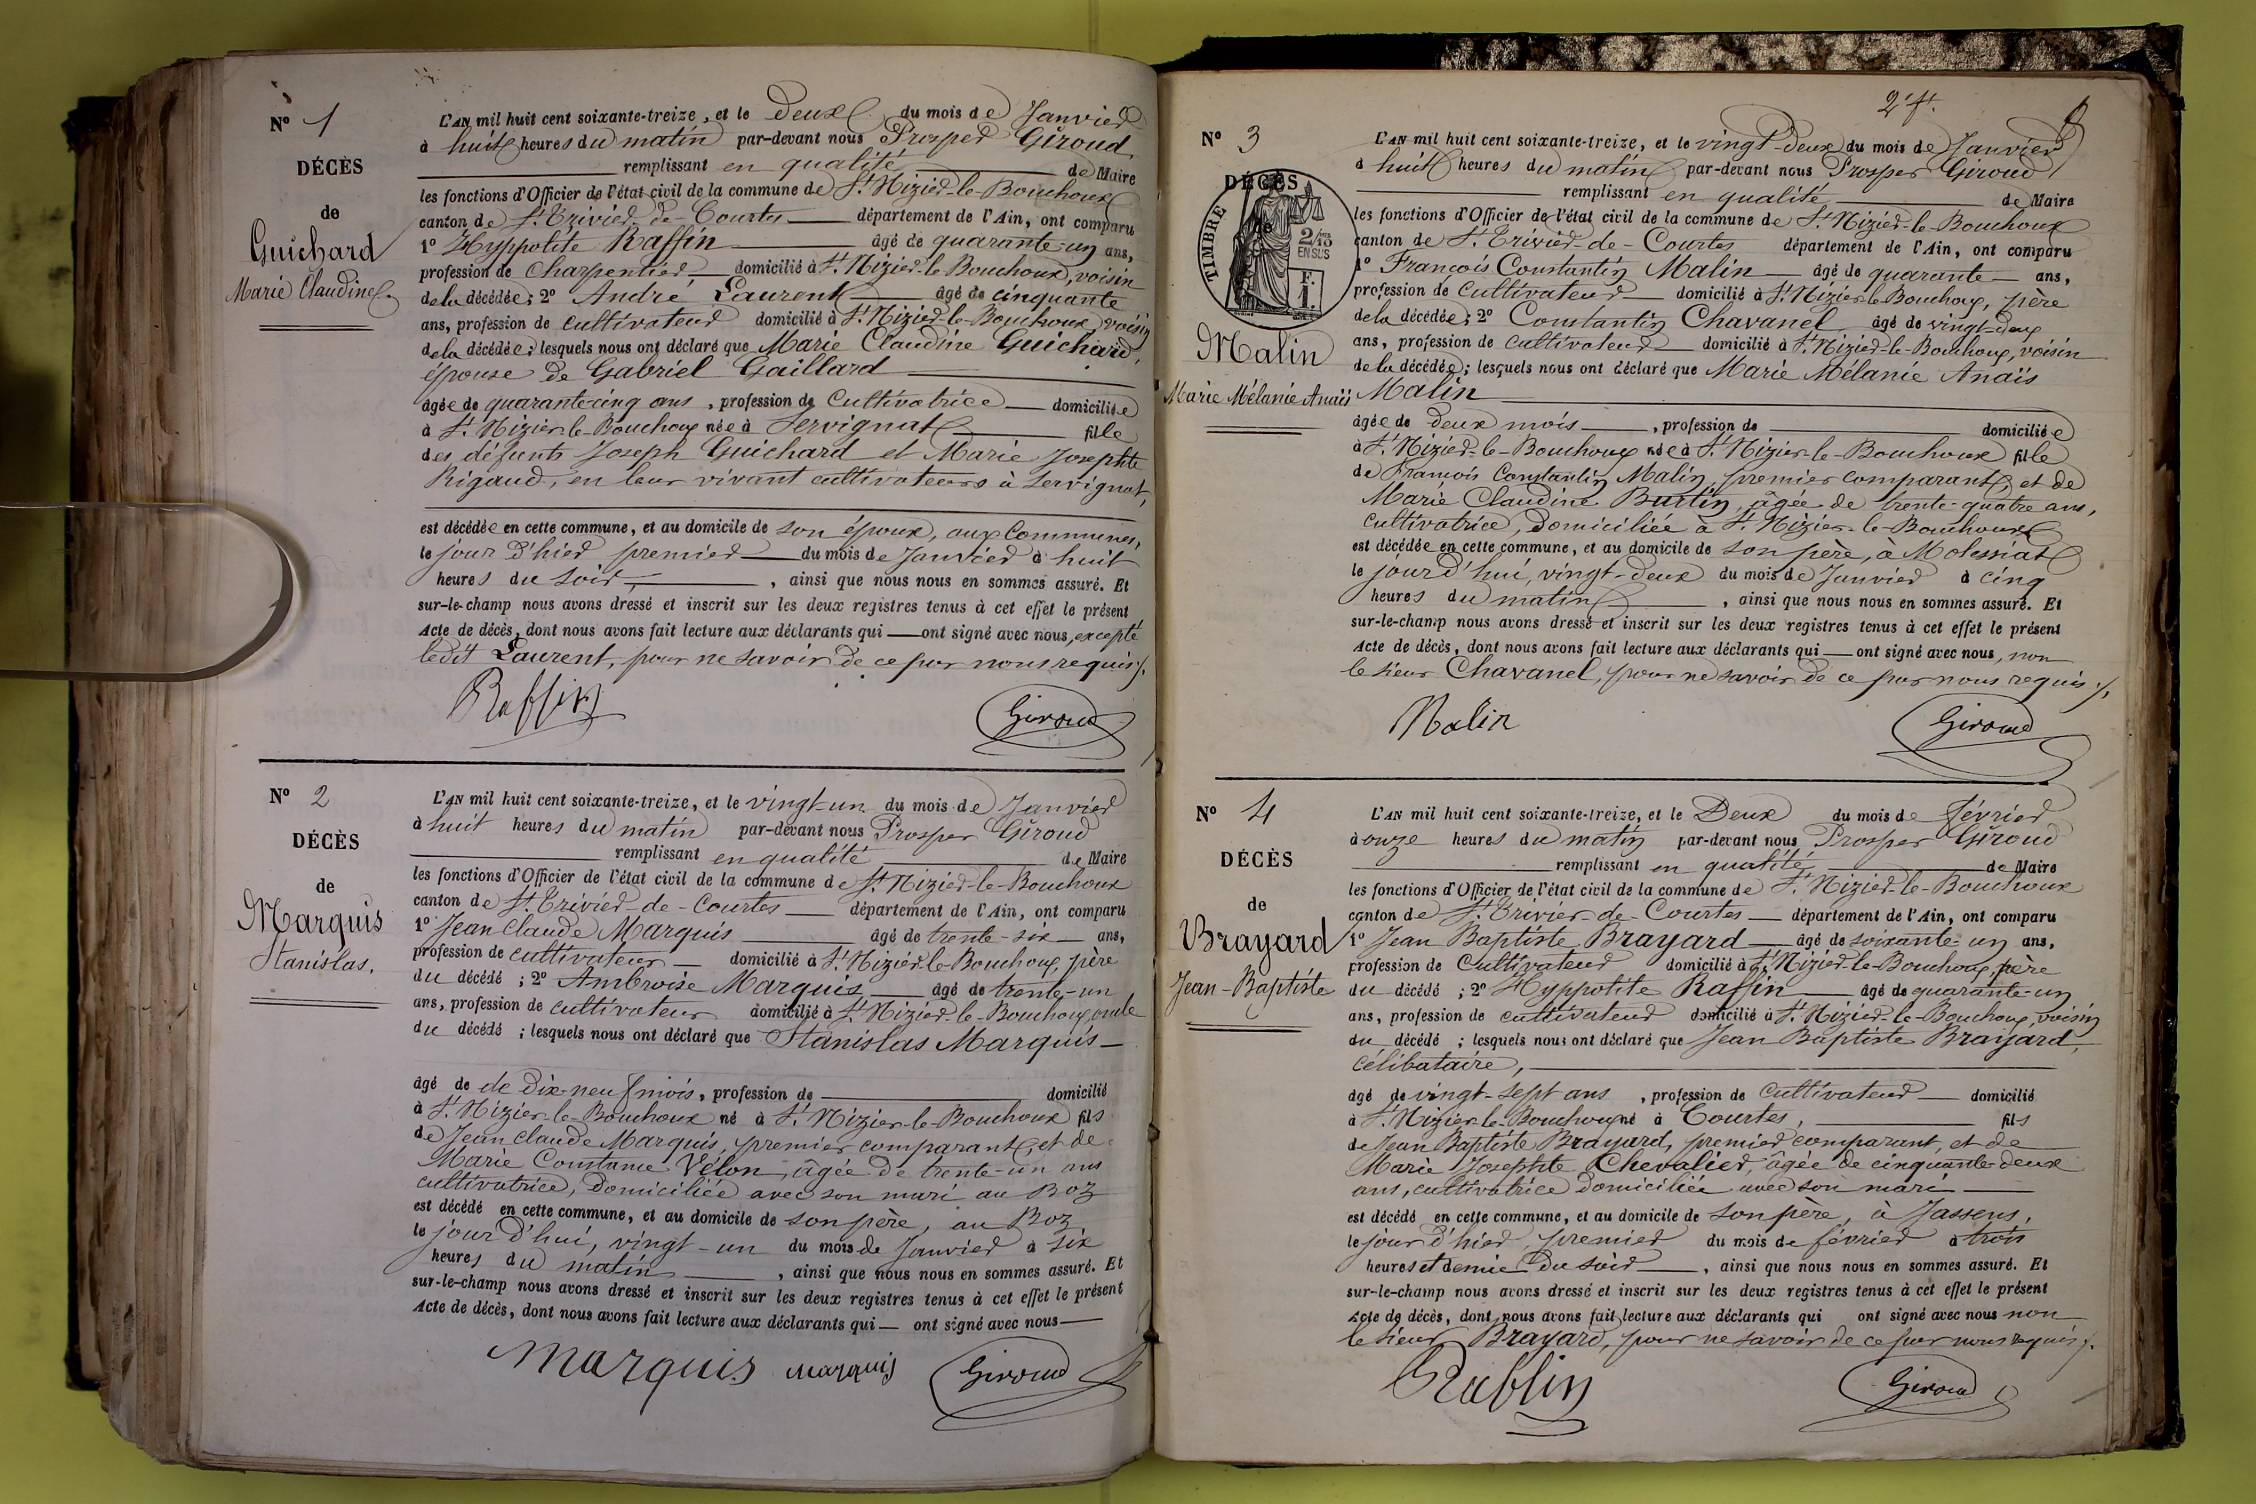 Nº 1
DÉCÈS
de
Guichard
Marie Claudine
L'AN mil huit cent soixante-treize, et le Deux du mois de Janvier
à huit heures du matin par-devant nous Prosper Giroud
remplissant en qualité de Maire
les fonctions d'Officier de l'état civil de la commune de St Nizier-le-Bouchoux
canton de St Trivier-de-Courtes département de l'Ain, ont comparu
1º Hyppolite Raffin âgé de quarante-un ans,
profession de Charpentier domicilié à St Nizier-le-Bouchoux, voisin
de la décédée; 2º André Laurent âgé de cinquante
ans, profession de cultivateur domicilié à St Nizier-le-Bouchoux, voisin
de la décédée; lesquels nous ont déclaré que Marie Claudine Guichard,
épouse de Gabriel Gaillard
âgée de quarante-cinq ans, profession de Cultivatrice domiciliée
à St Nizier-le-Bouchoux née à Servignat fille
des défunts Joseph Guichard et Marie Josephte
Rigaud, en leur vivant cultivateurs à Servignat,
est décédée en cette commune, et au domicile de son époux, aux Communes,
le jour d'hier premier du mois de Janvier à huit
heures du soir, ainsi que nous nous en sommes assuré. Et
sur-le-champ nous avons dressé et inscrit sur les deux registres tenus à cet effet le présent
Acte de décès, dont nous avons fait lecture aux déclarants qui ont signé avec nous, excepté
ledit Laurent, pour ne savoir de ce par nous requis ./.
Raffin Giroud
Nº 2
DÉCÈS
de
Marquis
Stanislas.
L'AN mil huit cent soixante-treize, et le vingt-un du mois de Janvier
à huit heures du matin par-devant nous Prosper Giroud
remplissant en qualité de Maire
les fonctions d'Officier de l'état civil de la commune de St Nizier-le-Bouchoux
canton de St Trivier-de-Courtes département de l'Ain, ont comparu
1º Jean Claude Marquis âgé de trente-six ans,
profession de cultivateur domicilié à St Nizier-le-Bouchoux, père
du décédé ; 2º Ambroise Marquis âgé de trente-un
ans, profession de cultivateur domicilié à St Nizier-le-Bouchoux, oncle
du décédé ; lesquels nous ont déclaré que Stanislas Marquis
âgé de de Dix-neuf mois, profession de domicilié
à St Nizier-le-Bouchoux né à St Nizier-le-Bouchoux fils
de Jean Claude Marquis, premier comparant, et de
Marie Constance Vélon, âgée de trente-un ans
cultivatrice, domiciliée avec son mari au Boz
est décédé en cette commune, et au domicile de son père, au Boz,
le jour d'hui, vingt-un du mois de Janvier à six
heures du matin, ainsi que nous nous en sommes assuré. Et
sur-le-champ nous avons dressé et inscrit sur les deux registres tenus à cet effet le présent
Acte de décès, dont nous avons fait lecture aux déclarants qui ont signé avec nous
Marquis Marquis Giroud
2 f.
Nº 3
DÉCÈS
de
TIMBRE
2/10
EN SUS
F.
1.
Malin
Marie Mélanie Anaïs
L'AN mil huit cent soixante-treize, et le vingt-deux du mois de Janvier
à huit heures du matin par-devant nous Prosper Giroud
remplissant en qualité de Maire
les fonctions d'Officier de l'état civil de la commune de St Nizier-le-Bouchoux
canton de St Trivier-de-Courtes département de l'Ain, ont comparu
1º François Constantin Malin âgé de quarante ans,
profession de Cultivateur domicilié à St Nizier-le-Bouchoux, père
de la décédée; 2º Constantin Chavanel âgé de vingt-deux
ans, profession de cultivateur domicilié à St Nizier-le-Bouchoux, voisin
de la décédée; lesquels nous ont déclaré que Marie Mélanie Anaïs
Malin
âgée de deux mois, profession de domiciliée
à St Nizier-le-Bouchoux née à St Nizier-le-Bouchoux fille
de François Constantin Malin, premier comparant, et de
Marie Claudine Burtin, âgée de trente-quatre ans,
cultivatrice, domiciliée à St Nizier-le-Bouchoux
est décédée en cette commune, et au domicile de son père, à Molessiat
le jour d'hui, vingt-deux du mois de Janvier à cinq
heures du matin, ainsi que nous nous en sommes assuré. Et
sur-le-champ nous avons dressé et inscrit sur les deux registres tenus à cet effet le présent
Acte de décès, dont nous avons fait lecture aux déclarants qui ont signé avec nous, non
le sieur Chavanel, pour ne savoir de ce par nous requis ./.
Malin Giroud
Nº 4
DÉCÈS
de
Brayard
Jean-Baptiste
L'AN mil huit cent soixante-treize, et le Deux du mois de février
à onze heures du matin par-devant nous Prosper Giroud
remplissant en qualité de Maire
les fonctions d'Officier de l'état civil de la commune de St Nizier-le-Bouchoux
canton de St Trivier-de-Courtes département de l'Ain, ont comparu
1º Jean Baptiste Brayard âgé de soixante-un ans,
profession de Cultivateur domicilié à St Nizier-le-Bouchoux, père
du décédé ; 2º Hyppolite Raffin âgé de quarante-un
ans, profession de cultivateur domicilié à St Nizier-le-Bouchoux, voisin
du décédé ; lesquels nous ont déclaré que Jean Baptiste Brayard,
célibataire,
âgé de vingt-sept ans, profession de Cultivateur domicilié
à St Nizier-le-Bouchoux né à Courtes, fils
de Jean Baptiste Brayard, premier comparant, et de
Marie Josephte Chevalier, âgée de cinquante-deux
ans, cultivatrice domiciliée avec son mari
est décédé en cette commune, et au domicile de son père, à Jassens,
le jour d'hier, premier du mois de février à trois
heures et demie du soir, ainsi que nous nous en sommes assuré. Et
sur-le-champ nous avons dressé et inscrit sur les deux registres tenus à cet effet le présent
Acte de décès, dont nous avons fait lecture aux déclarants qui ont signé avec nous non
le sieur Brayard, pour ne savoir de ce par nous requis ./.
Raffin Giroud